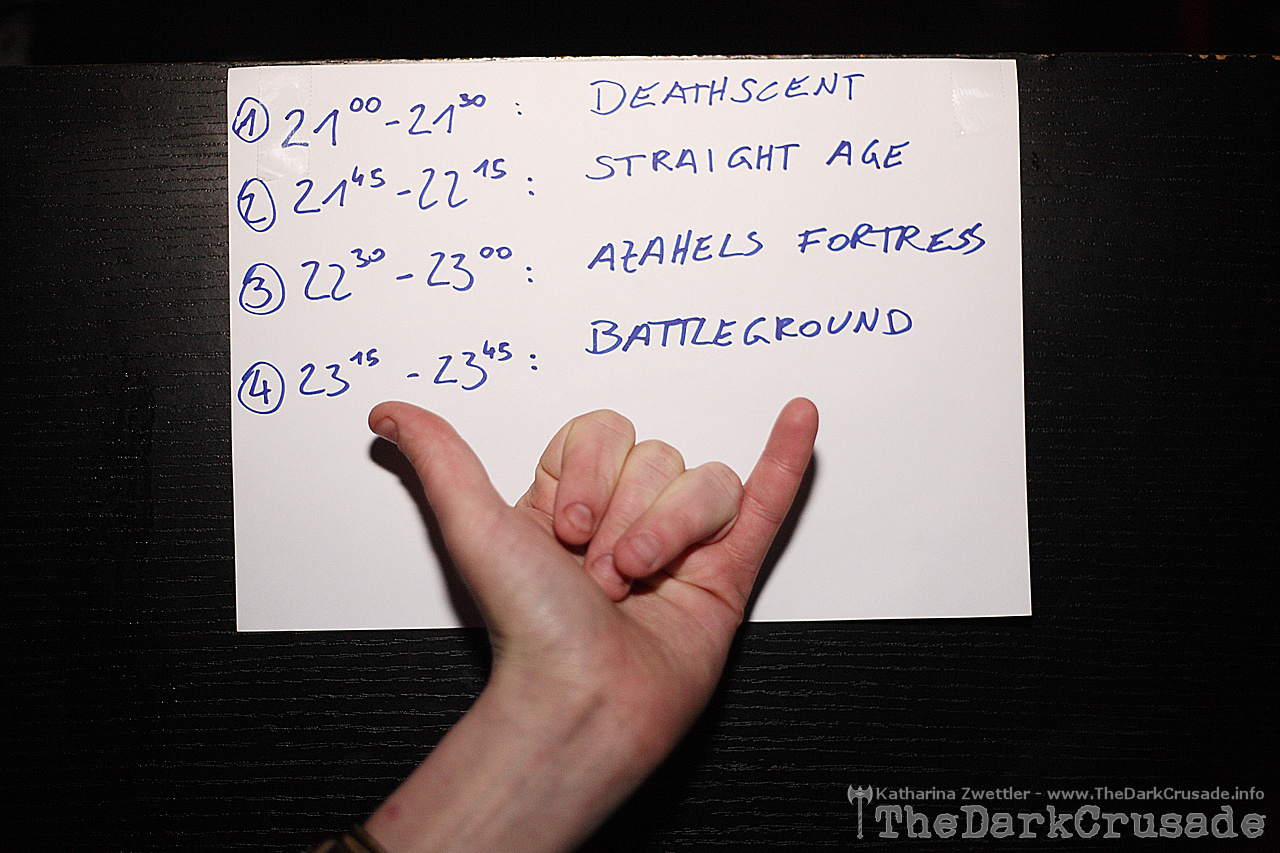 ① 21⁰⁰ - 21³⁰ : DEATHSCENT
② 21⁴⁵ - 22¹⁵ : STRAIGHT AGE
③ 22³⁰ - 23⁰⁰ : AZAHELS FORTRESS
④ 23¹⁵ - 23⁴⁵ : BATTLEGROUND
Katharina Zwettler - www.TheDarkCrusade.info
TheDarkCrusade